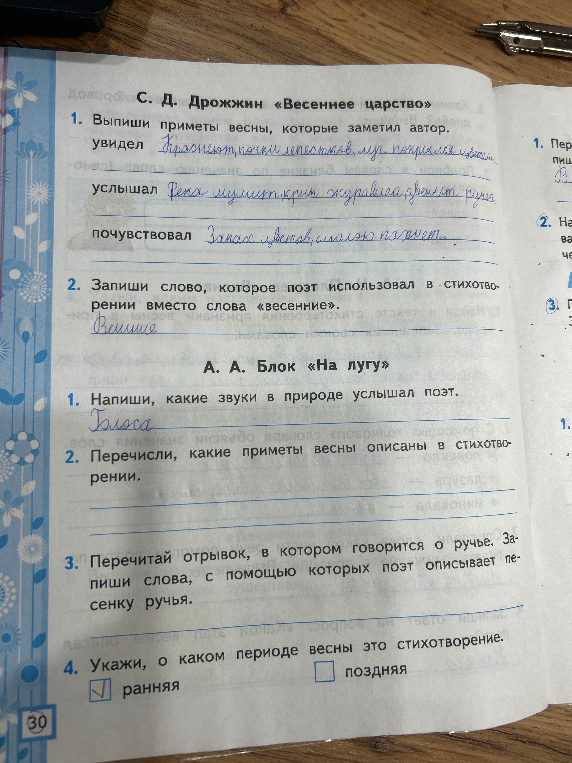 С. Д. Дрожжин «Весеннее царство»
1. Выпиши приметы весны, которые заметил автор.
увидел Краснеют, почки лепестков, луг покрылся
услышал Река шумит, крик журавля, звенят
почувствовал Запах цветов, смолою пахнет.
2. Запиши слово, которое поэт использовал в стихотво-
рении вместо слова «весенние».
Вешние
А. А. Блок «На лугу»
1. Напиши, какие звуки в природе услышал поэт.
Голоса
2. Перечисли, какие приметы весны описаны в стихотво-
рении.
3. Перечитай отрывок, в котором говорится о ручье. За-
пиши слова, с помощью которых поэт описывает пе-
сенку ручья.
4. Укажи, о каком периоде весны это стихотворение.
ранняя поздняя
30
1. Пер
пиш
В
2. На
ва
че
3. П
З
1.